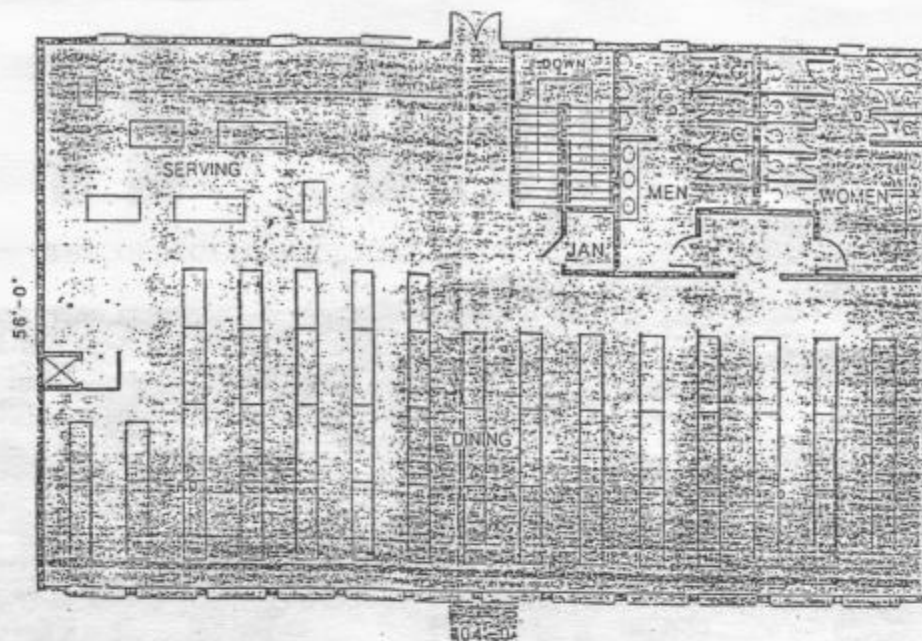 DOWN
SERVING
MEN
WOMEN
JAN.
56'-0"
DINING